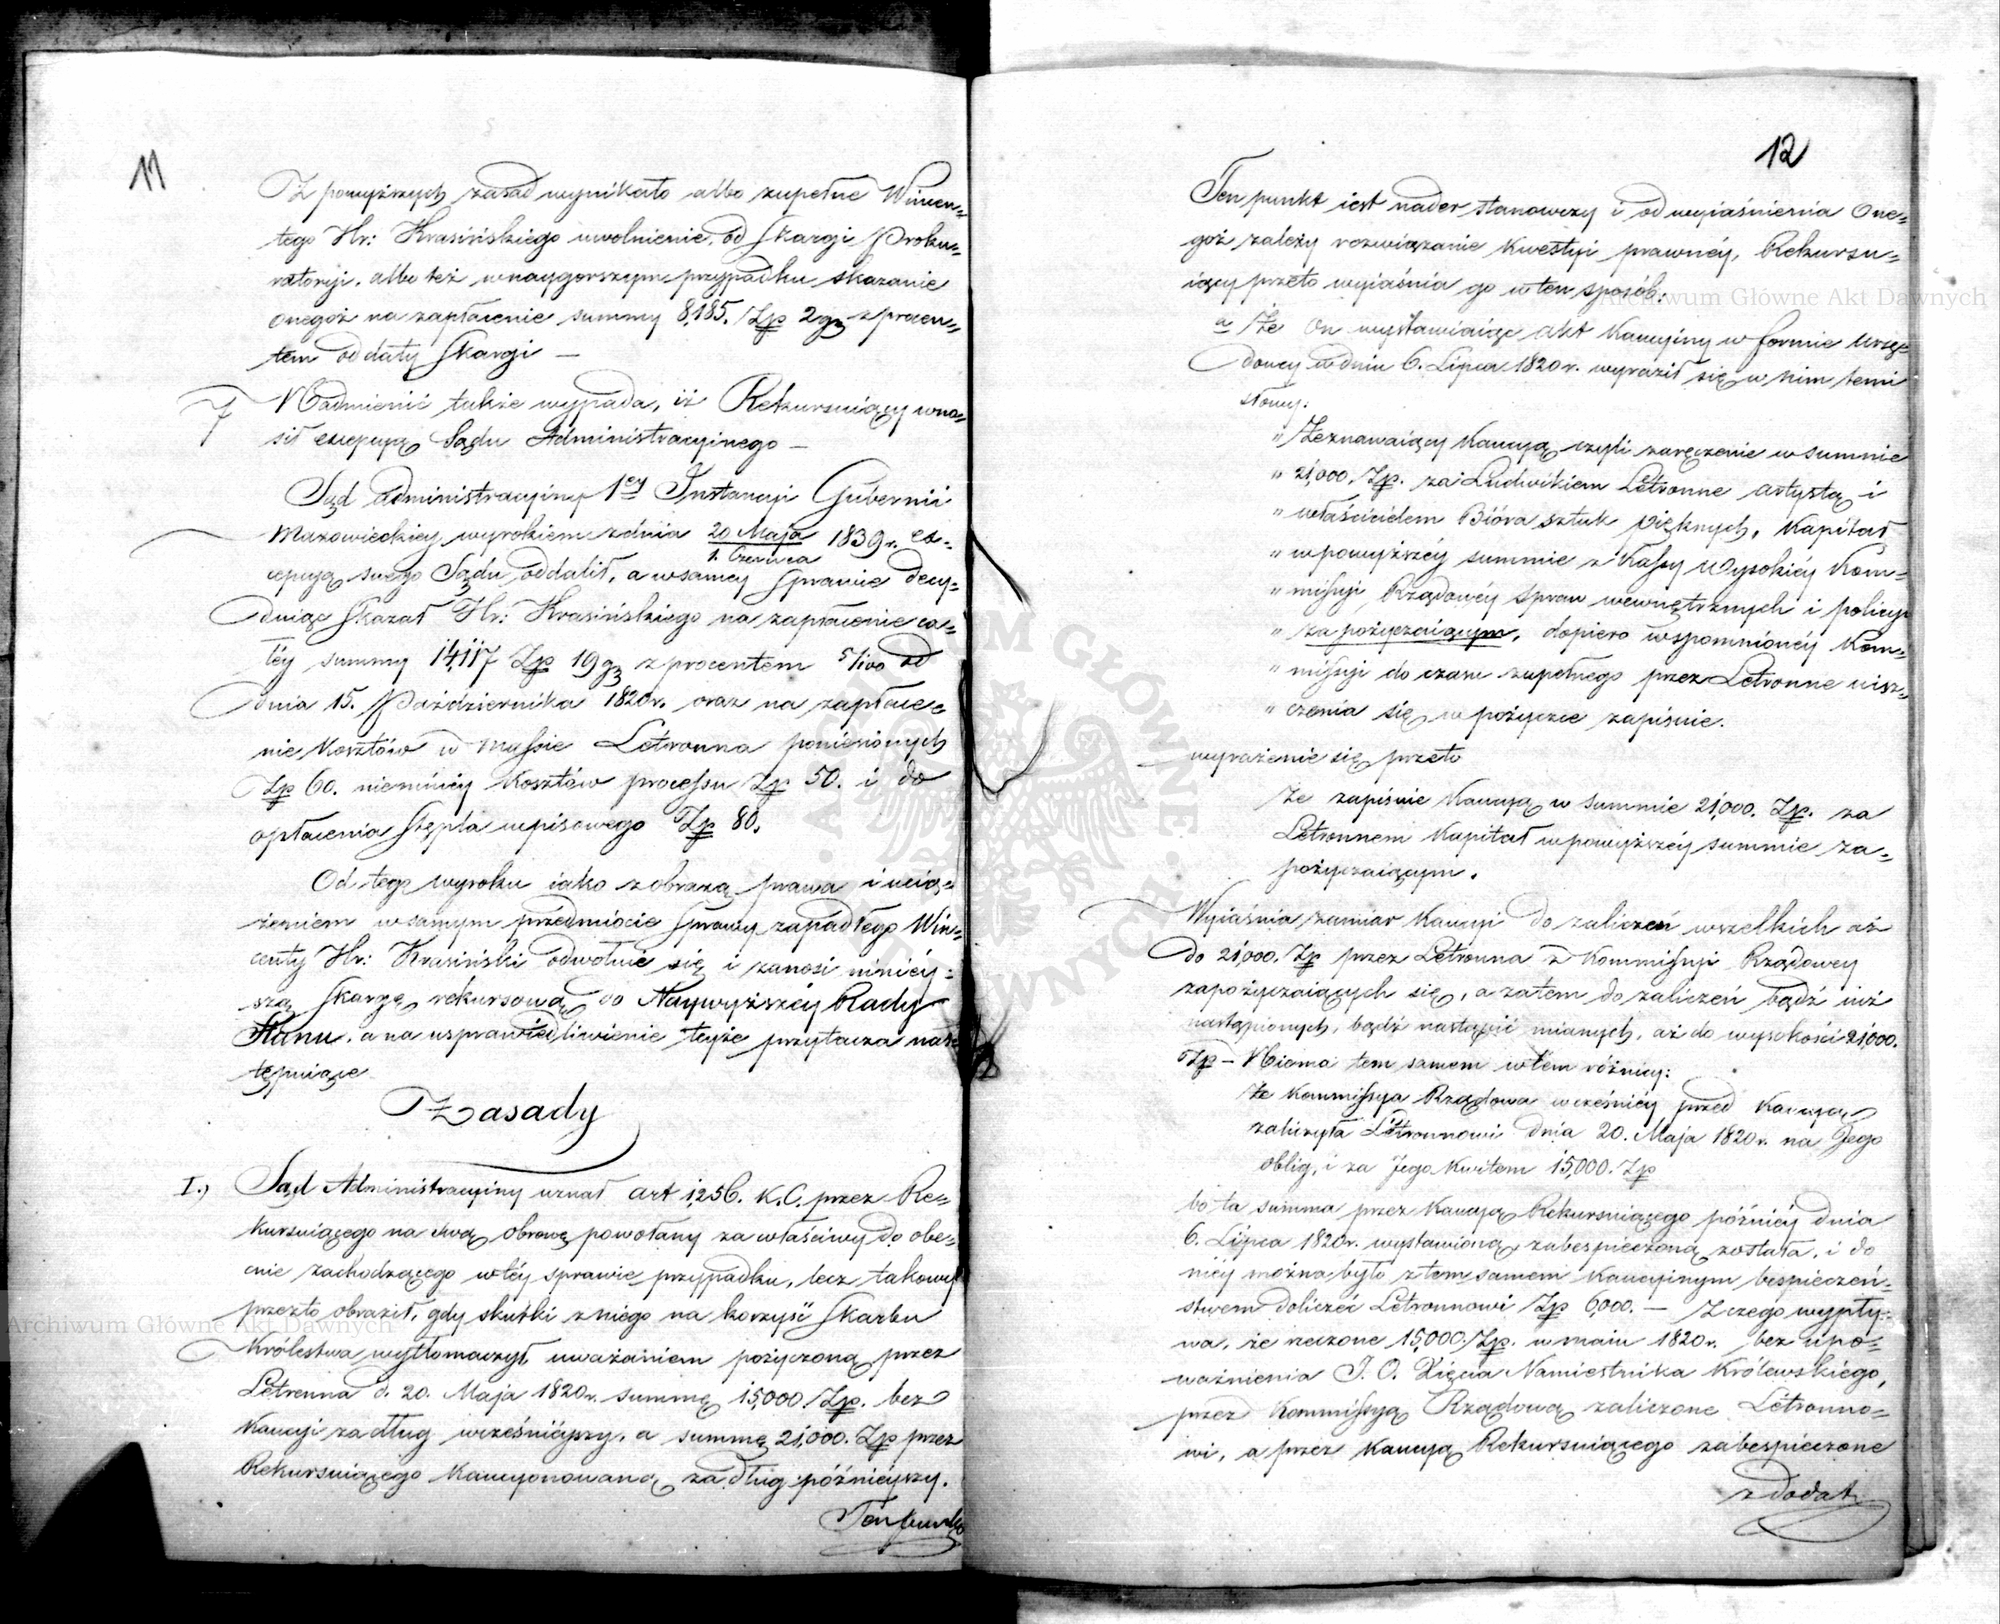 11
Z powyższych zasad wynikało albo zupełne Wincen-
tego Hr: Krasińskiego uwolnienie od Skargi Proku-
ratoryi, albo też w naygorszym przypadku skazanie
onegoż na zapłacenie summy 8,185. Złp 2 gr z procen-
tem od daty Skargi —
7 Nadmienić także wypada, iż Rekursuiący wno-
sił excepcyą Sądu Administracyinego —
Sąd administracyiny 1ey Instancyi Gubernii
Mazowieckiey wyrokiem z dnia 20 Maja / 1. Czerwca 1839 r. ex-
cepcyą swego Sądu oddalił, a w samey Sprawie decy-
duiąc skazał Hr: Krasińskiego na zapłacenie ca-
łéy summy 14,117 Złp 19 gr z procentem 5/100 od
dnia 15. Października 1820 r. oraz na zapłace-
nie kosztów w massie Letronna poniesionych
Złp 60. niemniéy kosztów processu Złp 50. i do
opłacenia Stępla wpisowego Złp 80.
Od tego wyroku iako z obrazą prawa i ucią-
żeniem w samym przedmiocie Sprawy zapadłego Win-
centy Hr: Krasiński odwołuie się i zanosi niniéy-
szą Skargę rekursową do Naywyższéy Rady
Stanu, a na usprawiedliwienie teyże przytacza nas-
tępuiące
Zasady
I.) Sąd Administracyiny uznał art 1,256. K.C. przez Re-
kursuiącego na swą obronę powołany za właściwy do obe-
cnie zachodzącego w téy sprawie przypadku, lecz takowy
przezto obraził, gdy skutki z niego na korzyść Skarbu
Królestwa wytłomaczył uważaniem pożyczoną przez
Letronna d. 20. Maja 1820 r. summę 15,000 Złp. bez
Kaucyi za dług wcześniéyszy, a summę 21,000. Złp przez
Rekursuiącego kaucyonowaną za dług późniéyszy.
Ten punkt
12
Ten punkt iest nader stanowczy i od wyiaśnienia one-
goż zależy rozwiązanie kwestyi prawnéy, Rekursu-
iący przeto wyiaśnia go w ten sposób:
a/ Że On wystawiaiąc akt Kaucyiny w formie urzę-
dowey w dniu 6. Lipca 1820 r. wyraził się w nim temi
słowy:
" Zeznawaiący Kaucyą czyli zaręczenie w summie
" 21,000. Złp. za Ludwikiem Letronne artystą i
" właścicielem Bióra sztuk pięknych, Kapitał
" w powyższéy summie z Kassy Wysokiey Kom-
" missyi Rządowéy Spraw wewnętrznych i policyi
" zapożyczaiącym, dopiero wspomnionéy Kom-
" missyi do czasu zupełnego przez Letronne uisz-
" czenia się w pożyczce zapisuie.
wyrażenie się przeto
że zapisuie Kaucyą w summie 21,000. Złp. za
Letronnem Kapitał w powyższéy summie za-
pożyczaiącym.
Wyiaśnia zamiar Kaucyi do zaliczeń wszelkich aż
do 21,000. Złp przez Letronna z Kommissyi Rządowey
zapożyczaiących się, a zatem do zaliczeń bądź iuż
nastąpionych, bądź nastąpić mianych, aż do wysokości 21,000.
Złp — Niema tem samem w tém różnicy:
że Kommissya Rządowa wcześniéy przed Kaucyą
zaliczyła Letronnowi dnia 20. Maja 1820 r. na Jego
oblig, i za Jego Kwitem 15,000. Złp
bo ta summa przez Kaucyą Rekursuiącego późniéy dnia
6. Lipca 1820 r. wystawioną zabespieczoną została, i do
niéy można było z tem samem Kaucyinym bespieczeń-
stwem doliczeć Letronnowi Złp 6,000. — Z czego wypły-
wa, że rzeczone 15,000 Złp. w maiu 1820 r. bez upo-
ważnienia J. O. Xięcia Namiestnika Królewskiego,
przez Kommissyą Rządową zaliczone Letronno-
wi, a przez Kaucyą Rekursuiącego zabespieczone
z dodat.
Archiwum Główne Akt Dawnych
Archiwum Główne Akt Dawnych